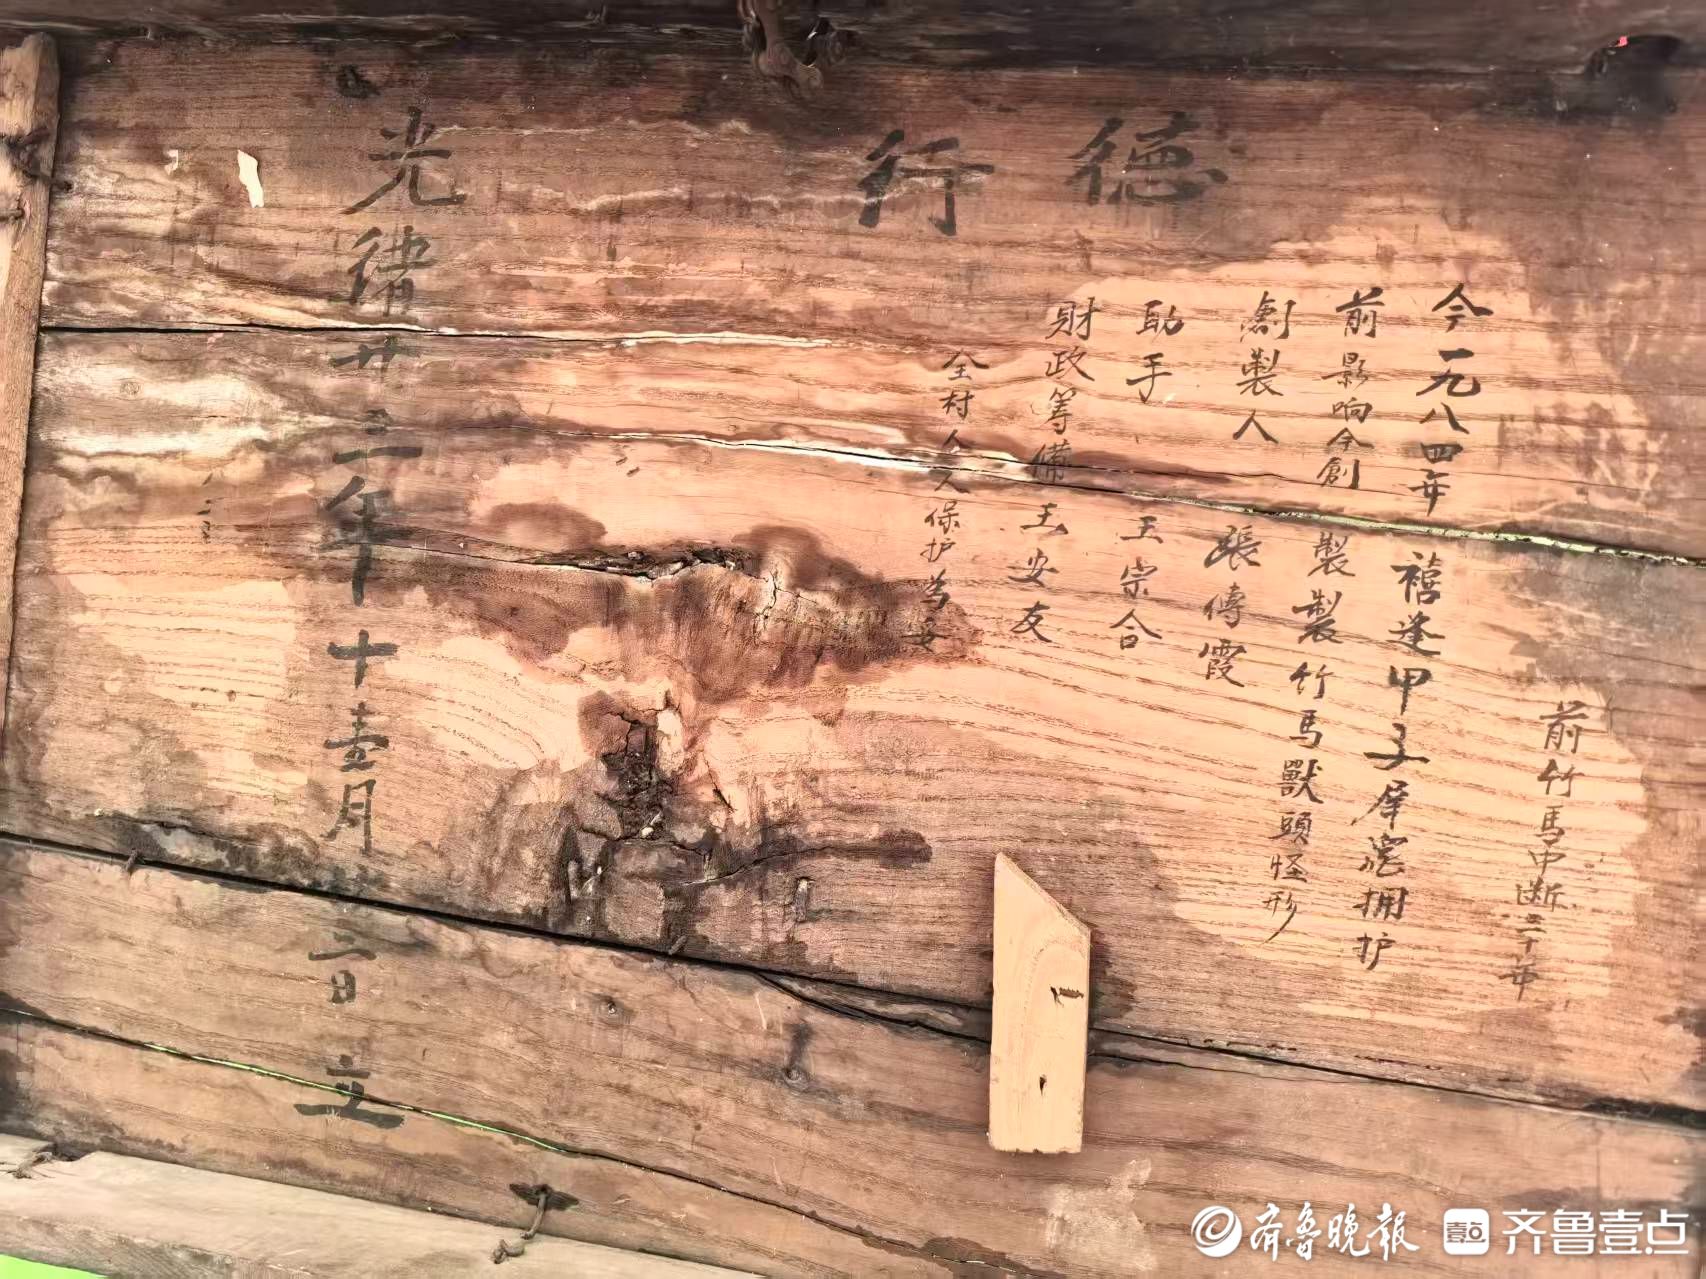 徳行
前竹馬中断三十年
今一九八四年 禧逢甲子拥护
前影响今創製
製竹馬獸頭怪形
創製人 張傳霞
助手 王宗合
財政筹備 王安友
全村人人保护為要
光緒廿三年十壹月二日立
齐鲁晚报 齐鲁壹点